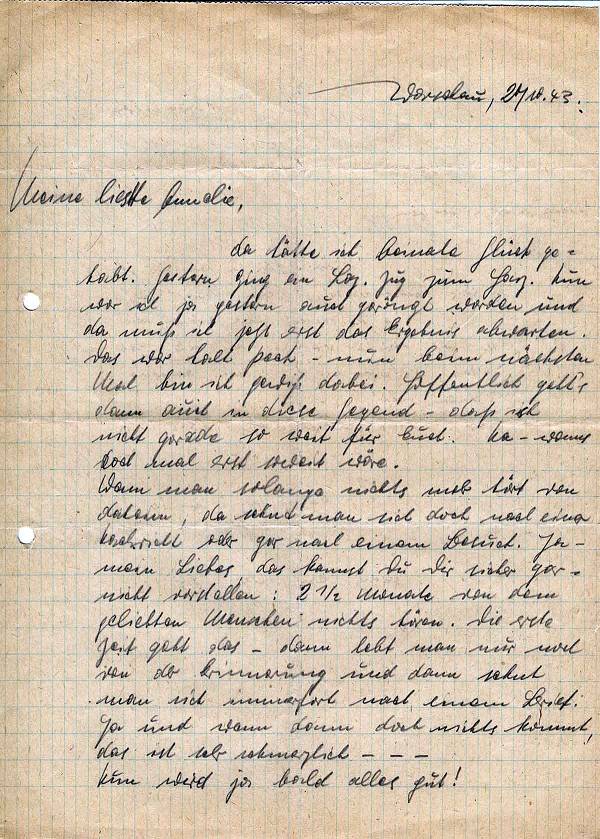 Warschau, 21/10.43.
Meine liebste Annelie,
da hätte ich beinahe Glück ge-
habt. Gestern ging ein Laz. Zug zum Harz. Nun
war ich ja gestern auch geröngt worden und
da muß ich jetzt erst das Ergebnis abwarten.
Das war halt pech – nun beim nächsten
Mal bin ich gewiß dabei. Hoffentlich geht's
dann auch in diese Gegend – daß ist
nicht gerade so weit für Euch. Na – wenns
doch mal erst soweit wäre.
Wenn man solange nichts mehr hört von
daheim, da sehnt man sich doch nach einer
Nachricht oder gar nach einem Besuch. Ja –
mein Liebes, das kannst Du Dir sicher gar-
nicht vorstellen: 2 1/2 Monate von dem
geliebten Menschen nichts hören. Die erste
Zeit geht das – dann lebt man nur noch
von der Erinnerung und dann sehnt
man sich immerfort nach einem Brief.
Ja und wenn dann doch nichts kommt,
das ist sehr schmerzlich – – –
Nun wird ja bald alles gut!